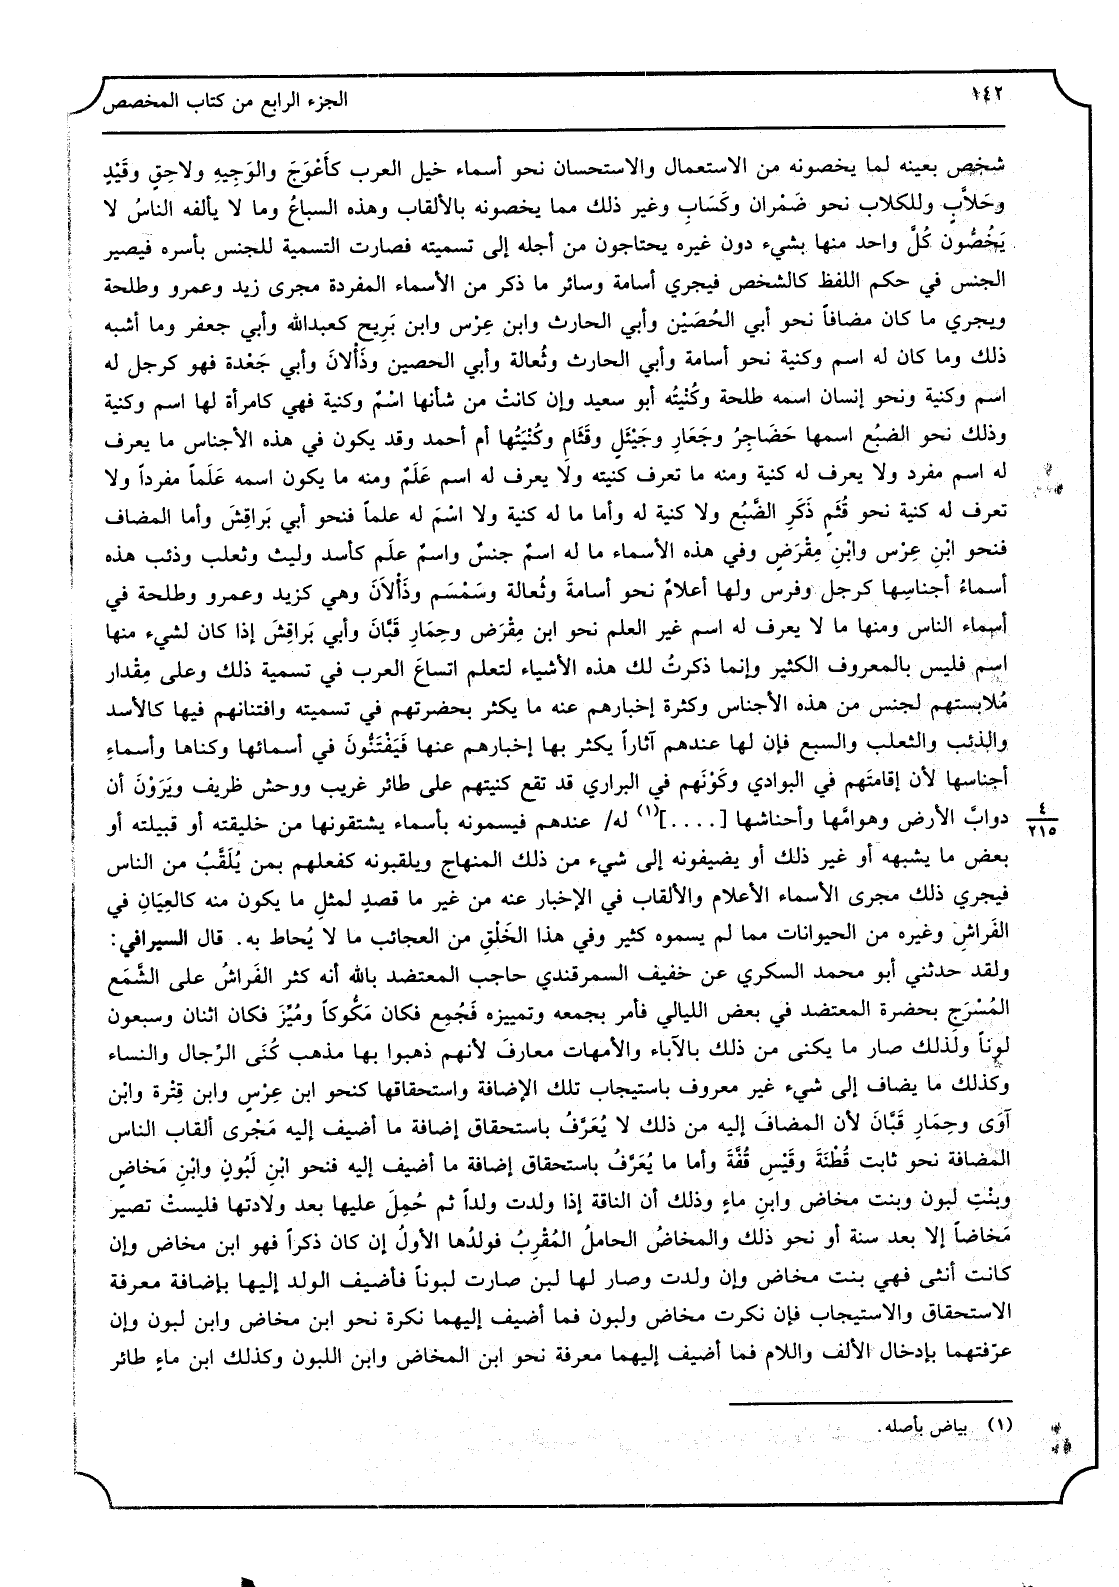 ١٤٢
الجزء الرابع من كتاب المخصص
شخص بعينه لما يخصونه من الاستعمال والاستحسان نحو أسماء خيل العرب كأَعْوَجَ والوَجِيهِ ولاحِقٍ وقَيْدٍ
وحَلاَّبٍ وللكلاب نحو ضَمْران وكَسَابِ وغير ذلك مما يخصونه بالألقاب وهذه السباعُ وما لا يألفه الناسُ لا
يَخُصُّون كُلَّ واحد منها بشيء دون غيره يحتاجون من أجله إلى تسميته فصارت التسمية للجنس بأسره فيصير
الجنس في حكم اللفظ كالشخص فيجري أسامة وسائر ما ذكر من الأسماء المفردة مجرى زيد وعمرو وطلحة
ويجري ما كان مضافاً نحو أبي الحُصَيْن وأبي الحارث وابن عِرْس وابن بَرِيح كعبدالله وأبي جعفر وما أشبه
ذلك وما كان له اسم وكنية نحو أسامة وأبي الحارث وثُعالة وأبي الحصين وذَأْلانَ وأبي جَعْدة فهو كرجل له
اسم وكنية ونحو إنسان اسمه طلحة وكُنْيتُه أبو سعيد وإن كانتْ من شأنها اسْمٌ وكنية فهي كامرأة لها اسم وكنية
وذلك نحو الضبُع اسمها حَضَاجِرُ وجَعَارِ وجَيْئَلٍ وقَثَامِ وكُنْيَتُها أم أحمد وقد يكون في هذه الأجناس ما يعرف
له اسم مفرد ولا يعرف له كنية ومنه ما تعرف كنيته ولا يعرف له اسم عَلَمٌ ومنه ما يكون اسمه عَلَماً مفرداً ولا
تعرف له كنية نحو قُثَمٍ ذَكَرِ الضَّبُع ولا كنية له وأما ما له كنية ولا اسْمَ له علماً فنحو أبي بَراقِشَ وأما المضاف
فنحو ابْنِ عِرْس وابْنِ مِقْرَضٍ وفي هذه الأسماء ما له اسمُ جنسٌ واسمُ علَم كأسد وليث وثعلب وذئب هذه
أسماءُ أجناسِها كرجل وفرس ولها أعلامٌ نحو أسامةَ وثُعالة وسَمْسَم وذَأْلاَنَ وهي كزيد وعمرو وطلحة في
أسماء الناس ومنها ما لا يعرف له اسم غير العلم نحو ابن مِقْرَض وحِمَارِ قَبَّانَ وأبي بَراقِشَ إذا كان لشيء منها
اسم فليس بالمعروف الكثير وإنما ذكرتُ لك هذه الأشياء لتعلم اتساعَ العرب في تسمية ذلك وعلى مِقْدار
مُلابستهم لجنس من هذه الأجناس وكثرة إخبارهم عنه ما يكثر بحضرتهم في تسميته وافتنانهم فيها كالأسد
والذئب والثعلب والسبع فإن لها عندهم آثاراً يكثر بها إخبارهم عنها فَيَفْتَنُّونَ في أسمائها وكناها وأسماءِ
أجناسها لأن إقامتَهم في البوادي وكَوْنَهم في البراري قد تقع كنيتهم على طائر غريب ووحش ظريف ويَرَوْنَ أن
دوابَّ الأرض وهوامَّها وأحناشها [....](١) له/ عندهم فيسمونه بأسماء يشتقونها من خليقته أو قبيلته أو
٤
٢١٥
بعض ما يشبهه أو غير ذلك أو يضيفونه إلى شيء من ذلك المنهاج ويلقبونه كفعلهم بمن يُلَقَّبُ من الناس
فيجري ذلك مجرى الأسماء الأعلام والألقاب في الإخبار عنه من غير ما قصدٍ لمثلِ ما يكون منه كالعِيَانِ في
الفَراشِ وغيره من الحيوانات مما لم يسموه كثير وفي هذا الخَلْقِ من العجائب ما لا يُحاط به. قال السيرافي:
ولقد حدثني أبو محمد السكري عن خفيف السمرقندي حاجب المعتضد بالله أنه كثر الفَراشُ على الشَّمَع
المُسْرَجِ بحضرة المعتضد في بعض الليالي فأمر بجمعه وتمييزه فَجُمِع فكان مَكُّوكاً ومُيِّزَ فكان اثنان وسبعون
لوناً ولذلك صار ما يكنى من ذلك بالآباء والأمهات معارفَ لأنهم ذهبوا بها مذهب كُنَى الرِّجال والنساء
وكذلك ما يضاف إلى شيء غير معروف باستيجاب تلك الإضافة واستحقاقها كنحو ابن عِرْسٍ وابن قِتْرة وابْن
آوَى وحِمَارِ قَبَّانَ لأن المضافَ إليه من ذلك لا يُعَرَّفُ باستحقاق إضافة ما أضيف إليه مَجْرى ألقاب الناس
المضافة نحو ثابت قُطْنَةَ وقَيْسِ قُفَّةَ وأما ما يُعَرَّفُ باستحقاق إضافة ما أضيف إليه فنحو ابْنِ لَبُونٍ وابْنِ مَخاضٍ
وبنْتِ لبون وبنت مخاض وابنِ ماءٍ وذلك أن الناقة إذا ولدت ولداً ثم حُمِلَ عليها بعد ولادتها فليستْ تصير
مَخاضاً إلا بعد سنة أو نحو ذلك والمخاضُ الحاملُ المُقْرِبُ فولدُها الأولُ إن كان ذكراً فهو ابن مخاض وإن
كانت أنثى فهي بنت مخاض وإن ولدت وصار لها لبن صارت لبوناً فأضيف الولد إليها بإضافة معرفة
الاستحقاق والاستيجاب فإن نكرت مخاض ولبون فما أضيف إليهما نكرة نحو ابن مخاض وابن لبون وإن
عرّفتهما بإدخال الألف واللام فما أضيف إليهما معرفة نحو ابن المخاض وابن اللبون وكذلك ابن ماءٍ طائر
(١) بياض بأصله.